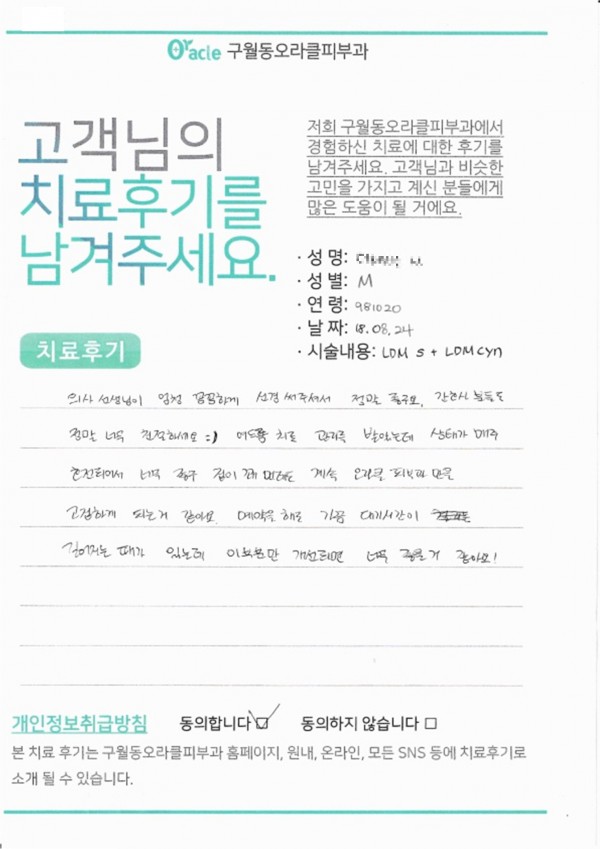 Oracle 구월동오라클피부과
고객님의
치료후기를
남겨주세요.
저희 구월동오라클피부과에서
경험하신 치료에 대한 후기를
남겨주세요. 고객님과 비슷한
고민을 가지고 계신 분들에게
많은 도움이 될 거에요.
· 성 명:
· 성 별: M
· 연 령: 981020
· 날 짜: 18.08.24
· 시술내용: LDM S + LDM cyn
치료후기
의사 선생님이 엄청 꼼꼼하게 신경써주셔서 정말 좋구요, 간호사 분들도
정말 너무 친절하세요 :) 여드름 치료 관리를 받았는데 상태가 매우
호전되어서 너무 좋구 집이 꽤 먼데도 계속 오라클 피부과 만을
고집하게 되는거 같아요. 예약을 해도 가끔 대기시간이
길어지는 때가 있는데 이부분만 개선되면 너무 좋을거 같아요!
개인정보취급방침 동의합니다 동의하지 않습니다
본 치료 후기는 구월동오라클피부과 홈페이지, 원내, 온라인, 모든 SNS 등에 치료후기로
소개 될 수 있습니다.